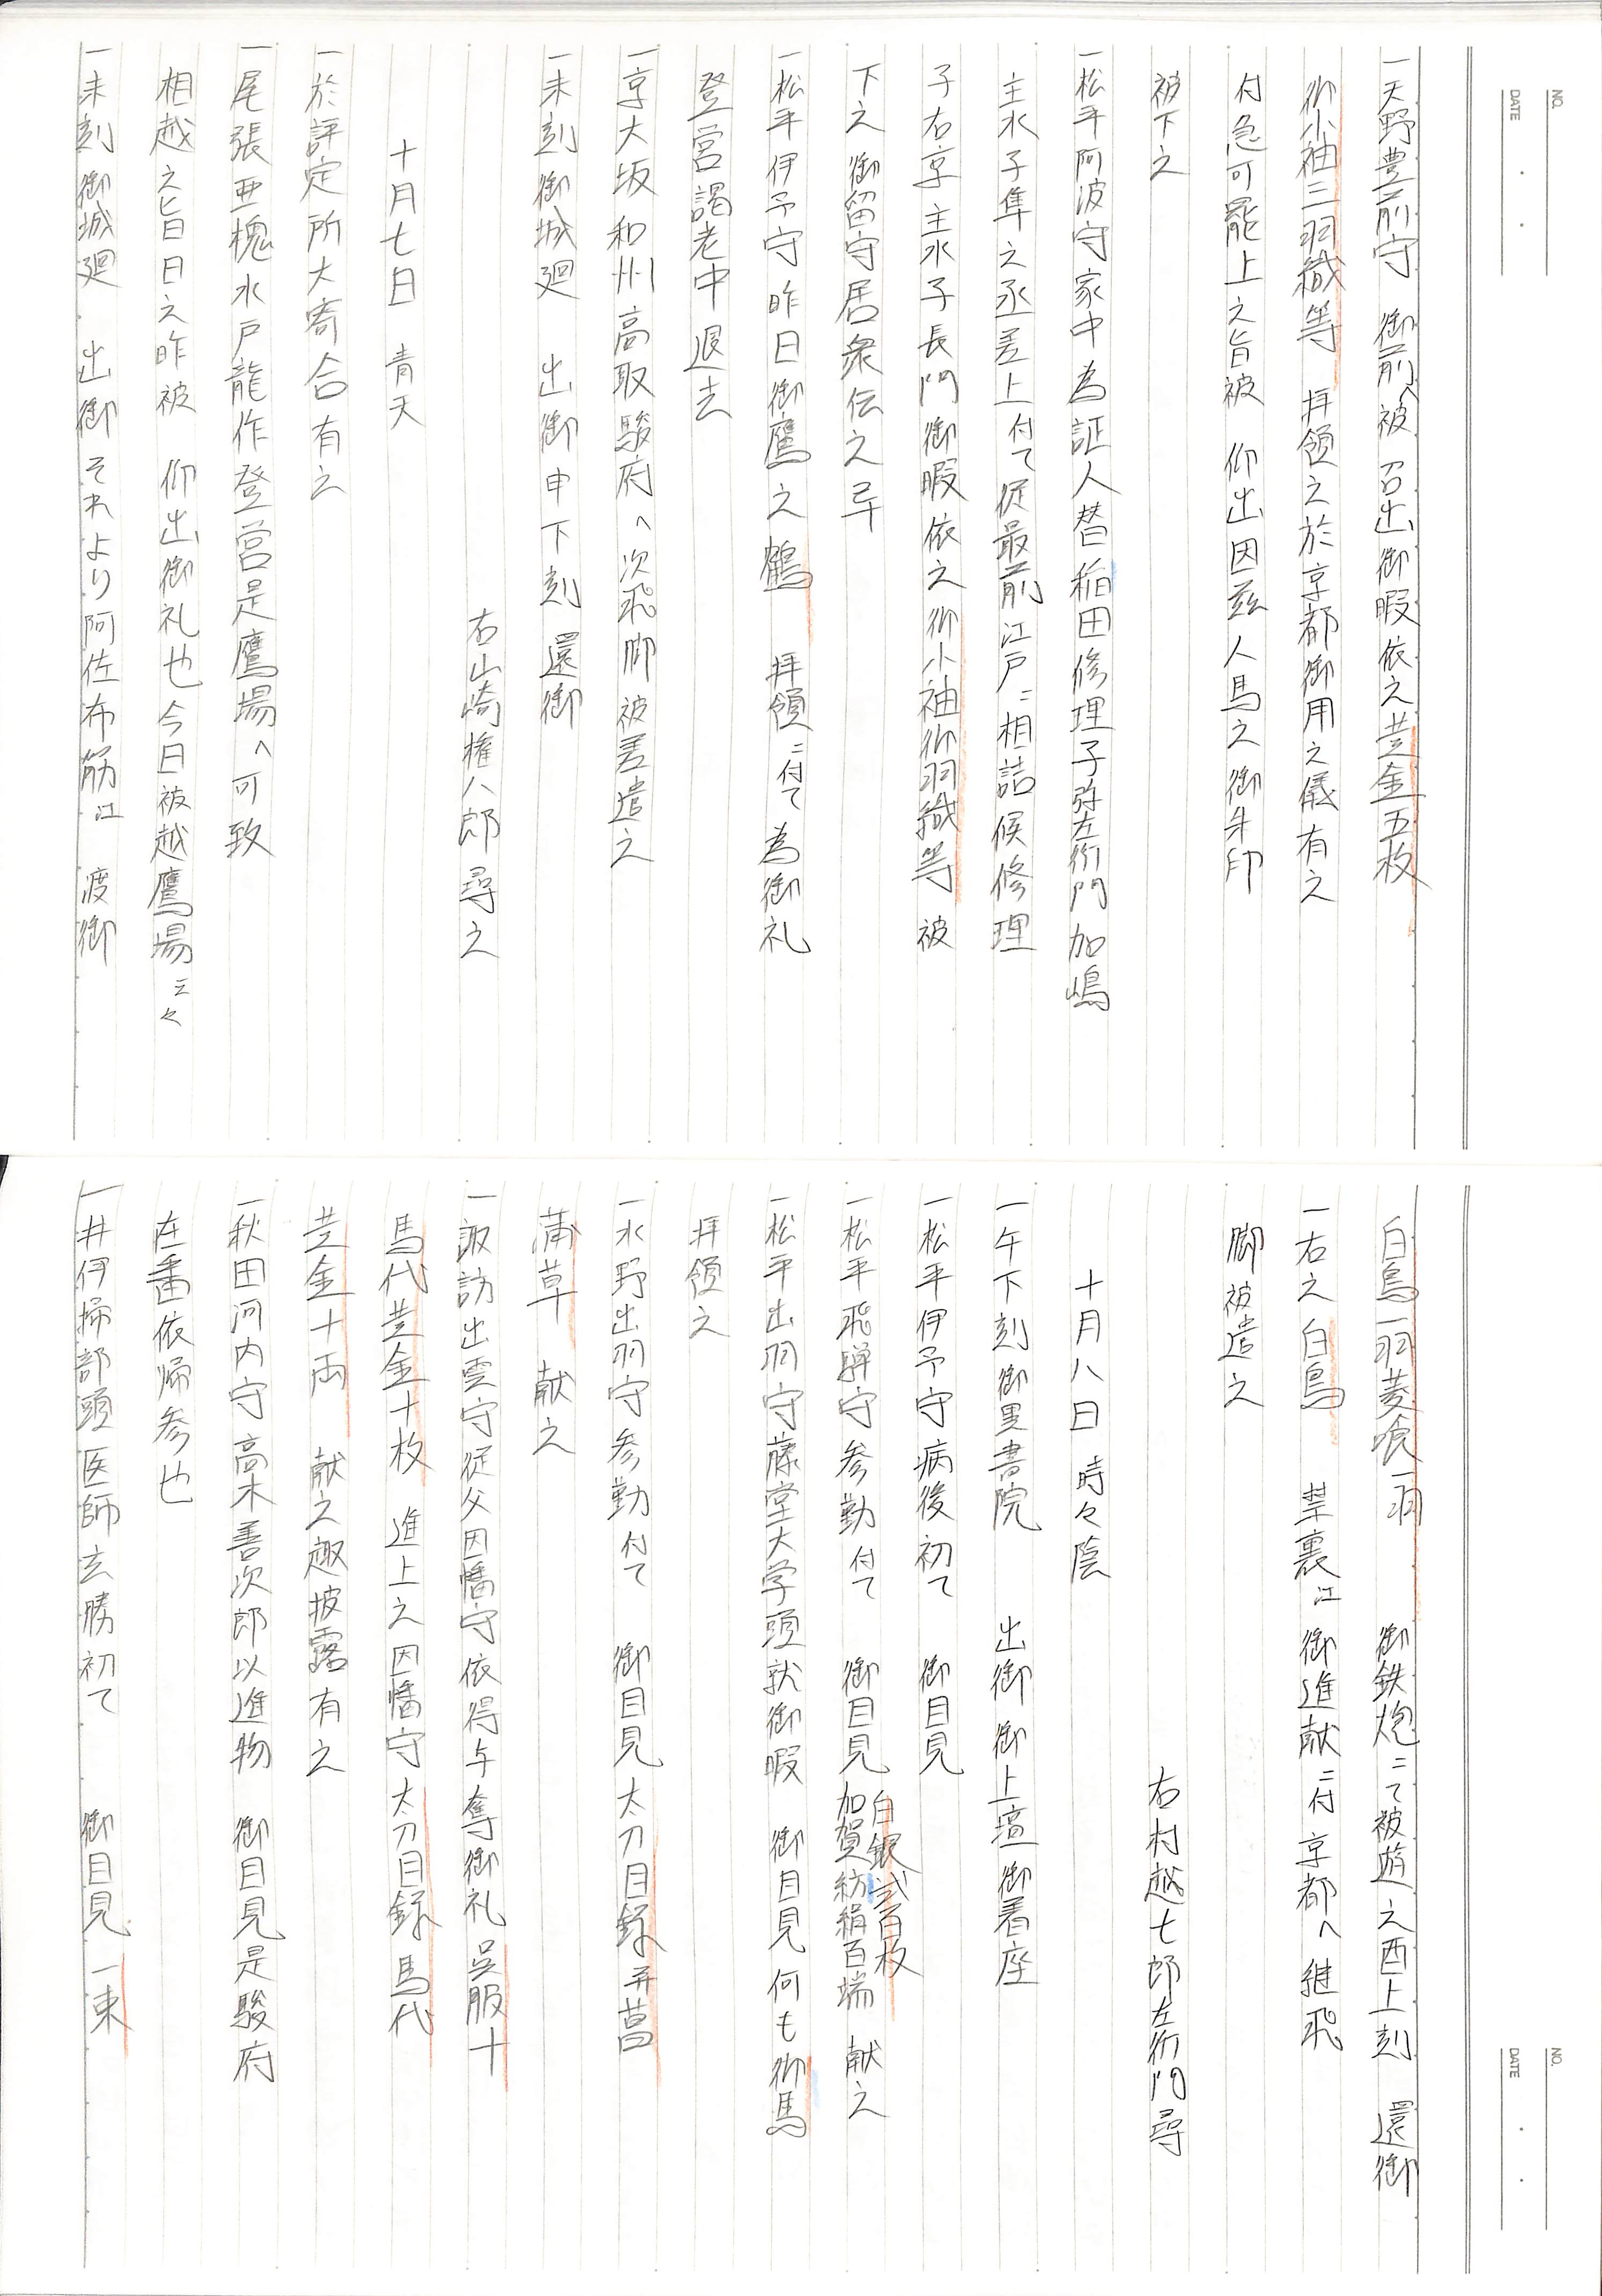 NO.
DATE
一天野豊前守　御前へ被　召出御暇依之黄金五枚
御小袖二羽織等　拝領之於京都御用之儀有之
付急可罷上之旨被　仰出因茲人馬之御朱印
被下之
一松平阿波守家中為証人替稲田修理子弥左衛門加嶋
主水子隼之丞差上付て従最前江戸ニ相詰候修理
子右京主水子長門御暇依之御小袖御羽織等被
下之御留守居衆伝之畢
一松平伊予守昨日御鷹之鶴　拝領ニ付て為御礼
登営謁老中退去
一京大坂和州高取駿府へ次飛脚被差遣之
一未刻御城廻　出御申下刻　還御
右山崎権八郎尋之
十月七日　青天
一於評定所大寄合有之
一尾張亜槐水戸龍作登営是鷹場へ可致
相越之旨日之昨被　仰出御礼也今日被越鷹場云々
一未刻御城廻　出御それより阿佐布筋江　渡御
NO.
DATE
白鳥一羽菱喰一羽　御鉄炮ニて被遊之酉上刻　還御
一右之白鳥　禁裏江御進献ニ付京都へ継飛
脚被遣之
右村越七郎左衛門尋
十月八日　時々陰
一午下刻御黒書院　出御御上壇御着座
一松平伊予守病後初て　御目見
一松平飛騨守参勤付て　御目見白銀弐百枚加賀紡絹百端　献之
一松平出羽守藤堂大学頭就御暇　御目見何も御馬
拝領之
一水野出羽守参勤付て　御目見太刀目録并菖
蒲草　献之
一諏訪出雲守従父因幡守依得与奪御礼呉服十
馬代黄金十枚　進上之因幡守太刀目録馬代
黄金十両　献之趣披露有之
一秋田河内守高木善次郎以進物　御目見是駿府
在番依帰参也
一井伊掃部頭医師玄勝初て　御目見一束